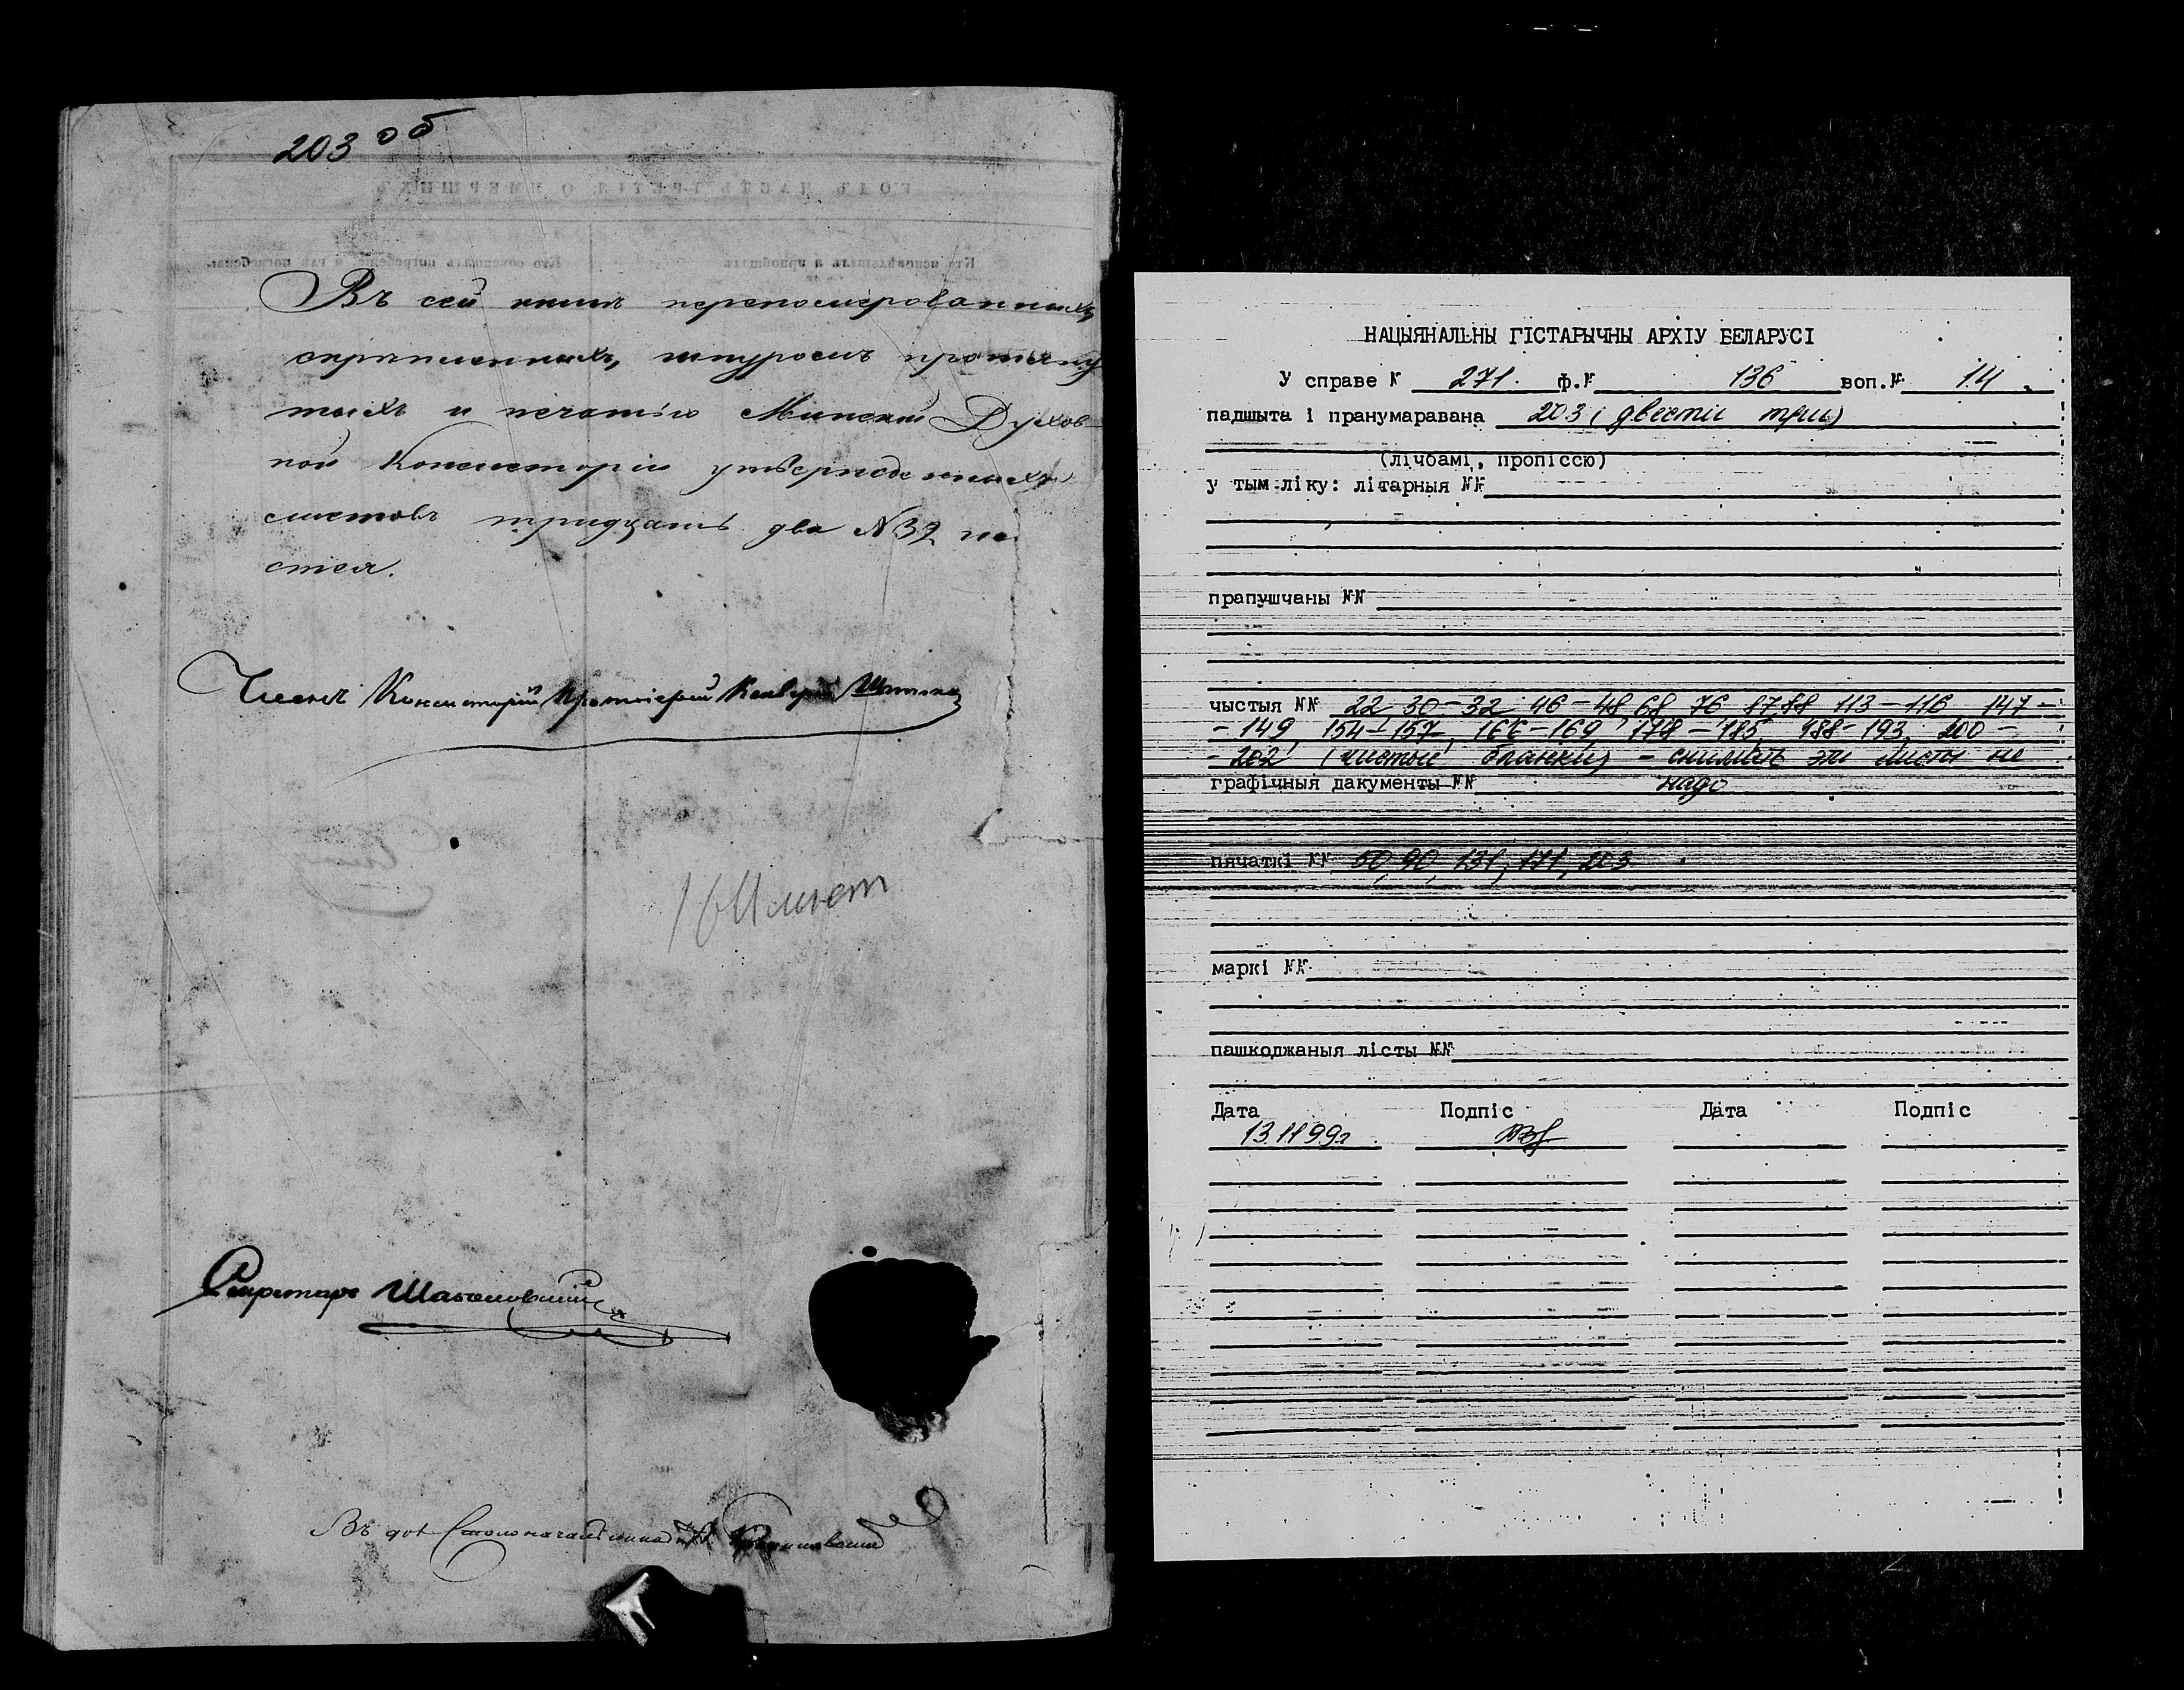 203 об
ГОДЪ ЧАСТЬ ТРЕТІЯ О УМЕРШИХЪ
Кто исповѣдывалъ и пріобщалъ Кто совершалъ погребеніе и гдѣ погребены.
Въ сей книгѣ перенумерованныхъ,
скрѣпленныхъ, шнуромъ протяну
тыхъ и печатью Минской Духов
ной Консисторіи утвержденныхъ
листовъ тридцать два №32 ли
стъя.
Членъ Консисторіи Протоіерей
164 лист
Секретарь
Въ дол Столоначальника
НАЦЫЯНАЛЬНЫ ГІСТАРЫЧНЫ АРХІУ БЕЛАРУСІ
У справе № 271. ф.№ 136 воп.№ 14
падшыта і пранумаравана 203 (двести три)
(лічбамі, пропіссю)
у тым ліку: літарныя №№
прапушчаны №№
чыстыя №№ 22, 30-32, 46-48, 68, 76, 87,88, 113-116, 147-
-149, 154-157, 166-169, 178-185, 188-193, 200-
-202 (чистые бланки) - снимать эти листы не
графічныя дакументы №№ надо
пячаткі №№ 60, 90, 131, 171, 203.
маркі №№
пашкоджаныя лісты №№
Дата Подпіс Дата Подпіс
13.11 99г